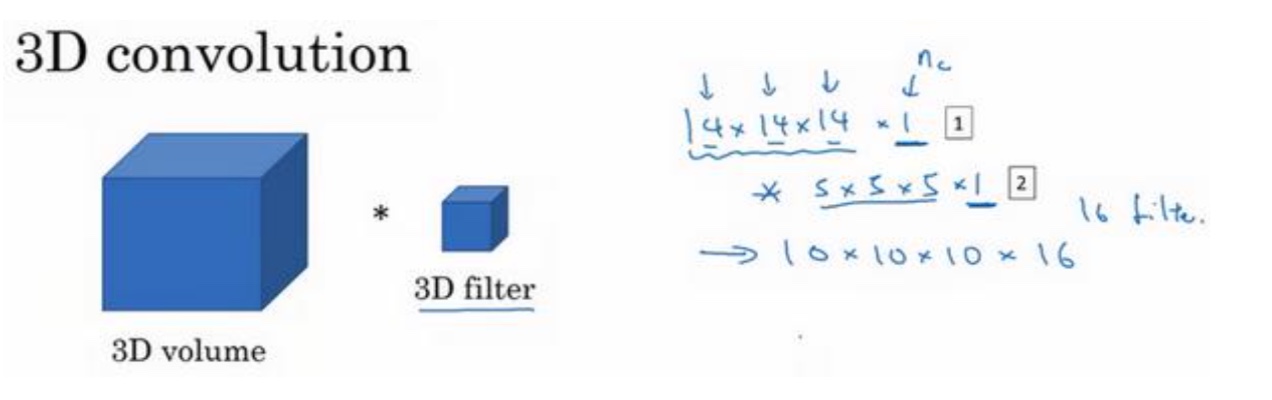 3D convolution
*
3D filter
3D volume
n_c
↓ ↓ ↓ ↓
14 × 14 × 14 × 1 1
* 5 × 5 × 5 × 1 2
16 filte.
→ 10 × 10 × 10 × 16